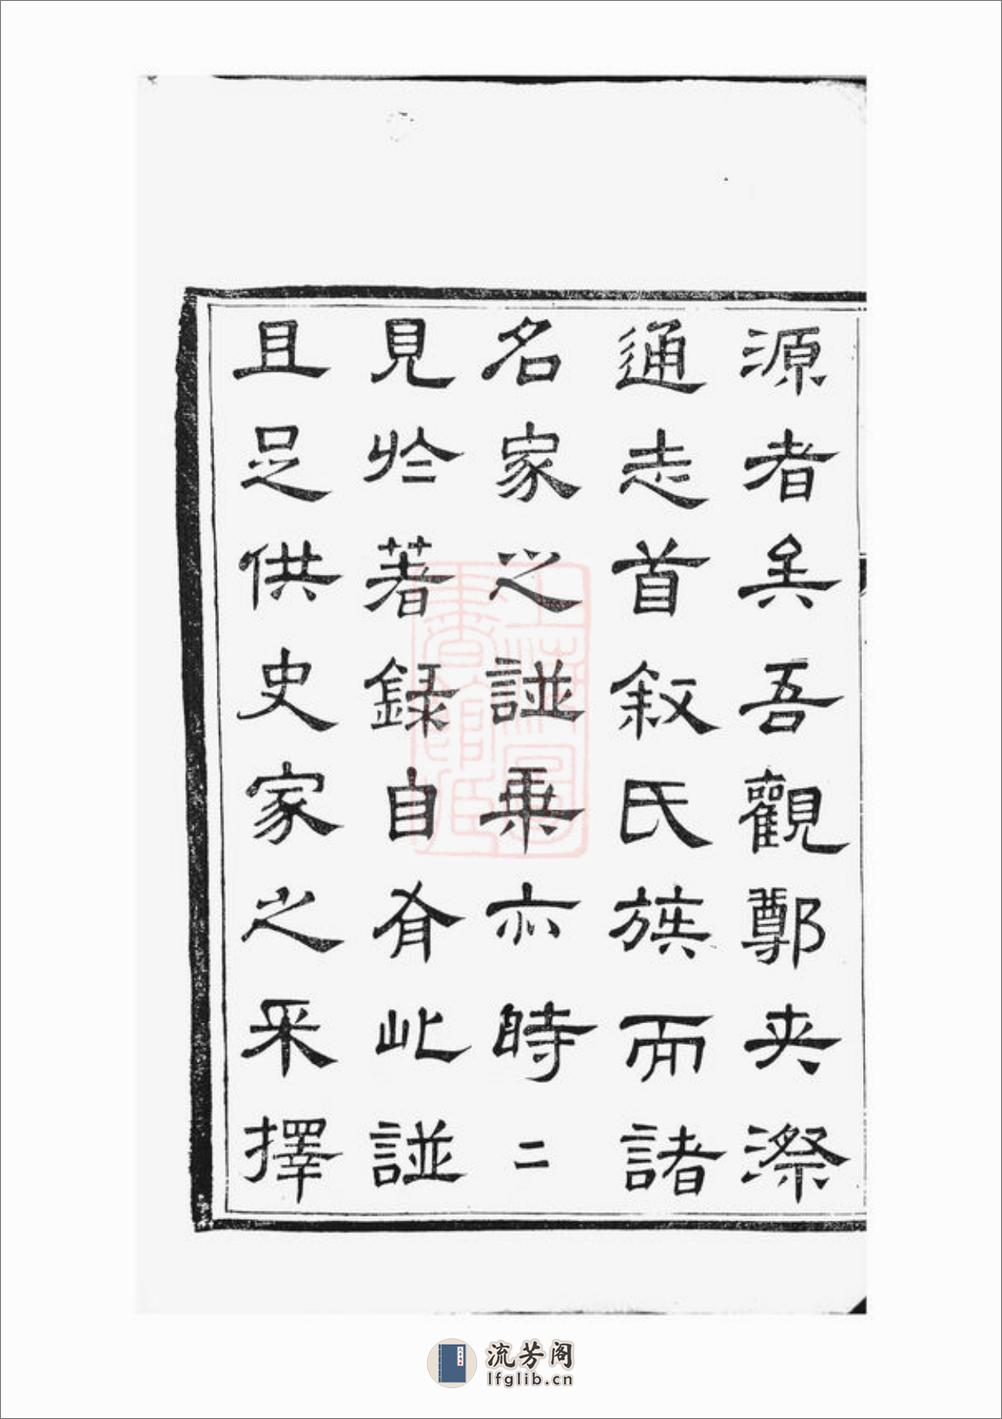 源者矣吾觀鄭夾漈
通志首叙氏族而諸
名家之諩乘亦時二
見於著錄自有此諩
且足供史家之采擇
上海圖
書館藏
流芳阁
lfglib.cn